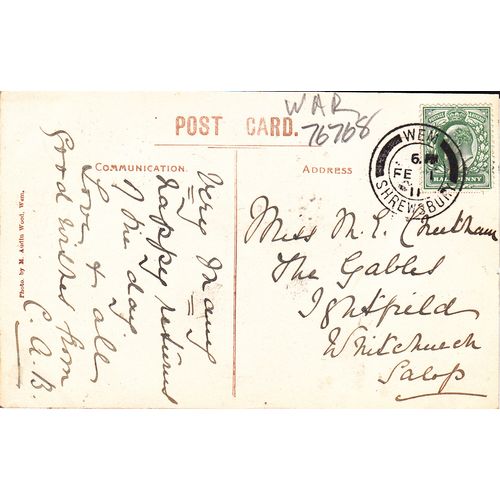 WAR
76768
POST CARD.
COMMUNICATION.
ADDRESS
Very Many
Happy returns
of the day
Love & all
Good wishes from
C.A.B.
Miss M.E. Cheetham
The Gables
Ightfield
Whitchurch
Salop
Photo by M. Austin Wood, Wem.
WEM
6.PM
FE 1
11
SHREWSBURY
HALFPENNY